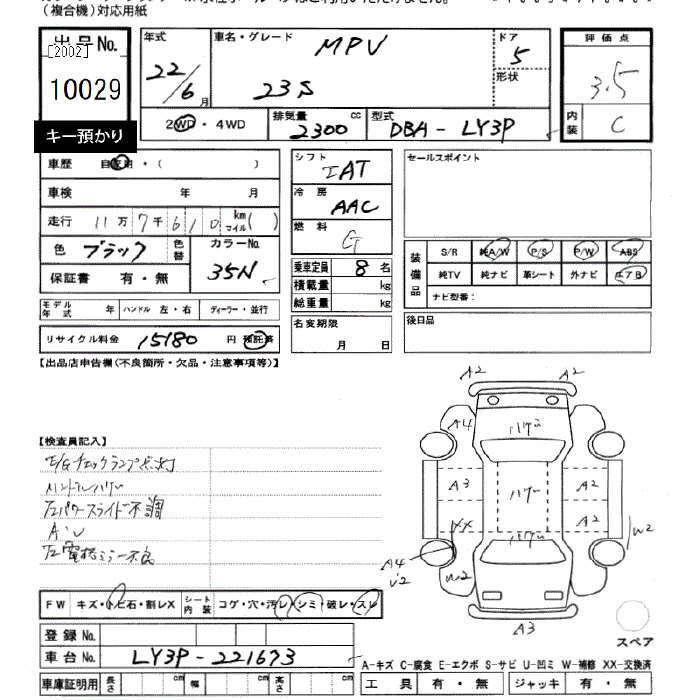 （複合機）対応用紙
出品No.
[2002]
10029
キー預かり
年式 22/6月
車名・グレード MPV
23S
ドア 5
形状
評価点 3.5
内装 C
2WD・4WD
排気量 2300cc
型式 DBA-LY3P
車歴 自家用・（ ）
車検 年 月
走行 11万7千610 km マイル( )
色 ブラック 色替
カラーNo. 35N
保証書 有・無
モデル年式 年 ハンドル 左・右 ディーラー・並行
リサイクル料金 15180 円 預託済
シフト IAT
冷房 AAC
燃料 G
乗車定員 8名
積載量 kg
総重量 kg
名変期限
月 日
セールスポイント
装備品 S/R 純A/W P/S P/W ABS
純TV 純ナビ 革シート 外ナビ エアB
ナビ型番：
後日品
【出品店申告欄（不良箇所・欠品・注意事項等）】
【検査員記入】
E/Gチェックランプ点灯
ハンドルハゲ
左パワースライド不調
A・U
左電格ミラー不良
A2 A2
A4 ハゲ
A3 ハゲ A2
XX ハゲ A2
W2
A4
W2
A3
スペア
FW キズ・トビ石・割レX シート内装 コゲ・穴・汚レ・シミ・破レ・スレ
登録No.
車台No. LY3P-221673
車庫証明用 長さ cm 幅 cm 高さ cm
A-キズ C-腐食 E-エクボ S-サビ U-凹ミ W-補修 XX-交換済
工具 有・無 ジャッキ 有・無